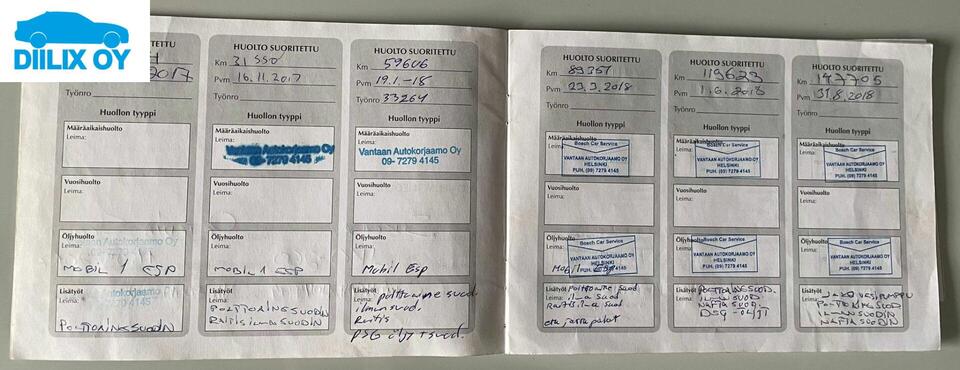 DIILIX OY
TETTU
2017
Työnro
Huollon tyyppi
Määräaikaishuolto
Leima:
Vuosihuolto
Leima:
Öljyhuolto
Leima:
Vantaan Autokorjaamo Oy
MOBIL 1 ESP
Lisätyöt
Autokorjaamo Oy
7279 4145
POLTTOAINESUODIN
HUOLTO SUORITETTU
Km 31 550
Pvm 16.11.2017
Työnro
Huollon tyyppi
Määräaikaishuolto
Leima:
Vantaan Autokorjaamo Oy
09- 7279 4145
Vuosihuolto
Leima:
Öljyhuolto
Leima:
MOBIL 1 ESP
Lisätyöt
POLTTOAINESUODIN
Raitisilmansuodin
HUOLTO SUORITETTU
Km 59606
Pvm 19.1-18
Työnro 33264
Huollon tyyppi
Määräaikaishuolto
Leima:
Vantaan Autokorjaamo Oy
09- 7279 4145
Vuosihuolto
Leima:
Öljyhuolto
Leima:
Mobil Esp
Lisätyöt
polttoaine suod.
ilmansuod
Raitis
DSG öljy + suod.
HUOLTO SUORITETTU
Km 89351
Pvm 2018
Työnro
Huollon tyyppi
Määräaikaishuolto
Leima:
Bosch Car Service
VANTAAN AUTOKORJAAMO OY
HELSINKI
PUH. (09) 7279 4145
Vuosihuolto
Leima:
Öljyhuolto
Leima:
Bosch Car Service
VANTAAN AUTOKORJAAMO OY
HELSINKI
PUH. (09) 7279 4145
Mobil
Lisätyöt
polttoaine suod.
ilma suod
Raitis.ilma suod
etu jarrupalat
HUOLTO SUORITETTU
Km 119623
Pvm 1.6.2018
Työnro
Huollon tyyppi
Määräaikaishuolto
Leima:
Bosch Car Service
VANTAAN AUTOKORJAAMO OY
HELSINKI
PUH. (09) 7279 4145
Vuosihuolto
Leima:
Öljyhuolto
Leima:
Bosch Car Service
VANTAAN AUTOKORJAAMO OY
HELSINKI
PUH. (09) 7279 4145
Lisätyöt
POLTTOAINESUOD.
ILMANSUOD
RAITIS SUOD
DSG-ÖLJYT
HUOLTO SUORITETTU
Km 147705
Pvm 31.8.2018
Työnro
Huollon tyyppi
Määräaikaishuolto
Leima:
Bosch Car Service
VANTAAN AUTOKORJAAMO OY
HELSINKI
PUH. (09) 7279 4145
Vuosihuolto
Leima:
Öljyhuolto
Leima:
Bosch Car Service
VANTAAN AUTOKORJAAMO OY
HELSINKI
PUH. (09) 7279 4145
Lisätyöt
VESIPUMPPU
POLTTOAINESUOD
ILMANSUODIN
RAITIS SUODIN